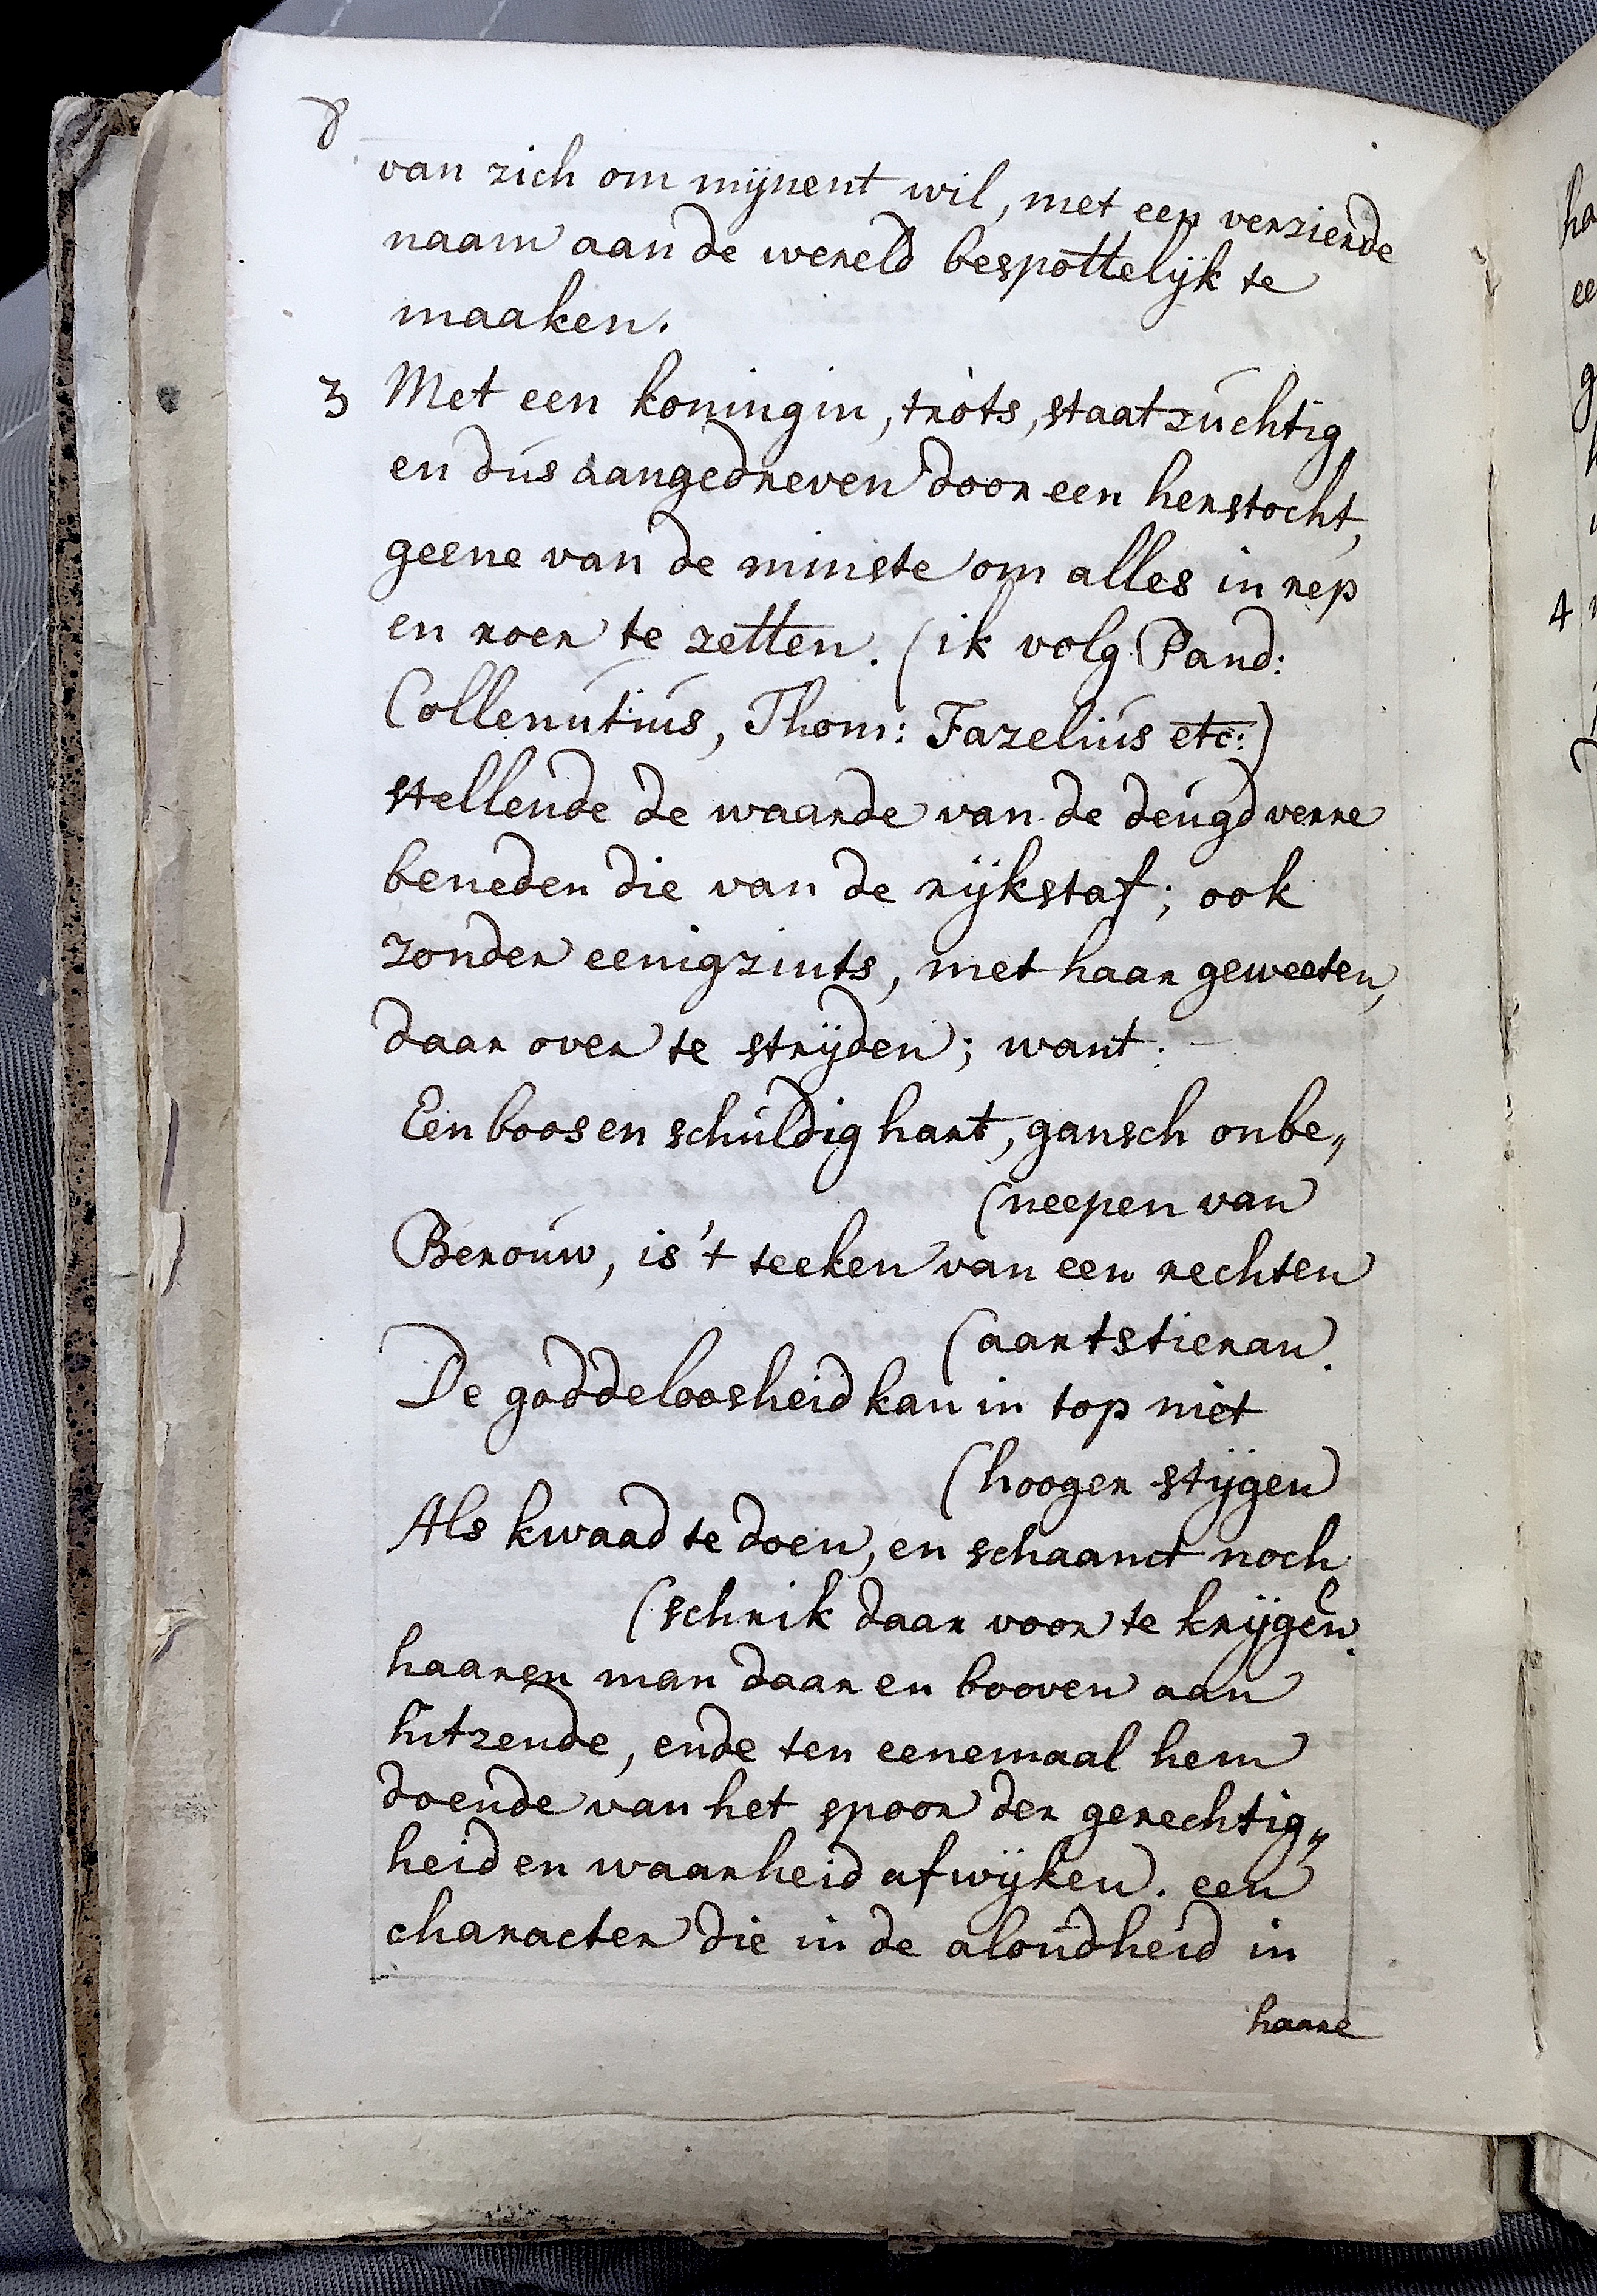 8
van zich om mijnent wil, met een verzierde
naam aan de wereld bespottelijk te
maaken.
3 Met een koningin, trots, staatzuchtig,
en dus aangedreven door een herstocht,
geene van de minste om alles in rep
en roer te zetten. (ik volg Pand:
Collenutius, Thom: Fazelius etc:)
stellende de waarde van de deugd verre
beneden die van de rijkstaf; ook
zonder eenigzints, met haar geweeten,
daar over te strijden; want:
Een boos en schuldig hart, gansch onbe„
(neepen van
Berouw, is 't teeken van een rechten
(aartstieran.
De goddeloosheid kan in top niet
(hooger stijgen
Als kwaad te doen, en schaamt noch
(schrik daar voor te krijgen.
haaren man daar en booven aan
hitzende, ende ten eenemaal hem
doende van het spoor der gerechtig„
heid en waarheid afwijken. een
character die in de aloudheid in
haare
4